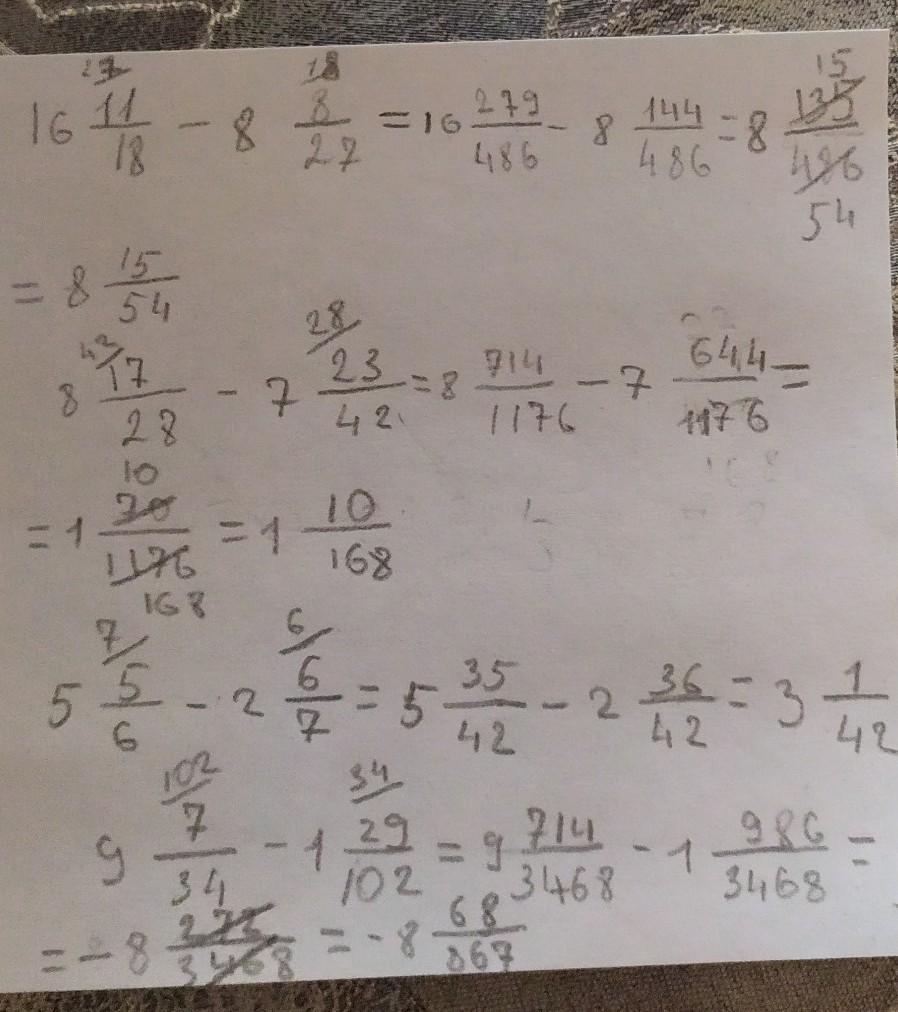 16 11/18 - 8 8/27 = 16 279/486 - 8 144/486 = 8 135/486 15 54
= 8 15/54
8 17/28 - 7 23/42 = 8 714/1176 - 7 644/1176 =
= 1 70/1176 10 168 = 1 10/168
5 5/6 - 2 6/7 = 5 35/42 - 2 36/42 = 3 1/42
9 7/34 - 1 29/102 = 9 714/3468 - 1 986/3468 =
= - 8 /3468 = - 8 68/867